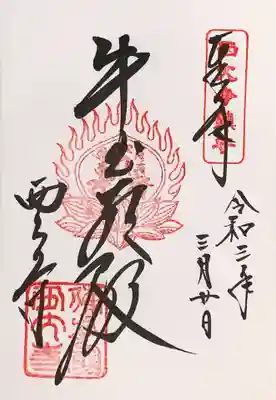 奉拝
令和三年
三月廿日
牛玉所殿
西大寺